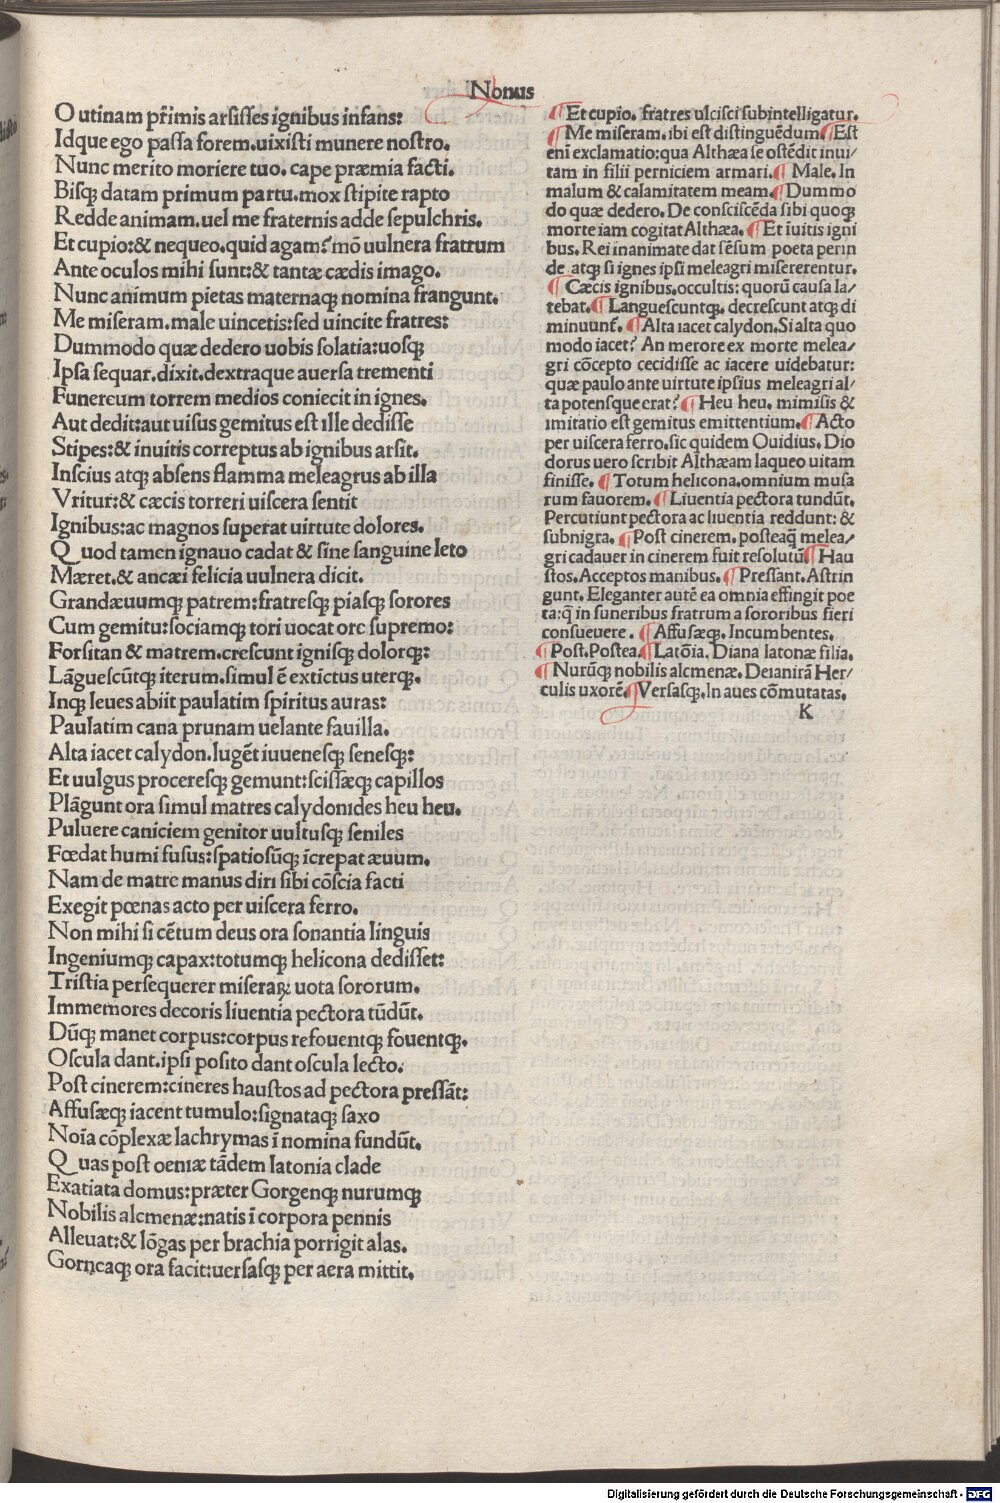 Nonus
O utinam pr̄imis arsisses ignibus infans:
Idque ego passa forem.uixisti munere nostro.
Nunc merito moriere tuo. cape præmia facti.
Bisq; datam primum partu.mox stipite rapto
Redde animam.uel me fraternis adde sepulchris.
Et cupio:& nequeo.quid agam? mō uulnera fratrum
Ante oculos mihi sunt:& tantæ cædis imago.
Nunc animum pietas maternaq; nomina frangunt.
Me miseram.male uincetis:sed uincite fratres:
Dummodo quæ dedero uobis solatia:uosq;
Ipsa sequar.dixit.dextraque auersa trementi
Funereum torrem medios coniecit in ignes.
Aut dedit:aut uisus gemitus est ille dedisse
Stipes:& inuitis correptus ab ignibus arsit.
Inscius atq; absens flamma meleagrus ab illa
Vritur:& cæcis torreri uiscera sentit
Ignibus:ac magnos superat uirtute dolores.
Quod tamen ignauo cadat & sine sanguine leto
Mæret.& ancæi felicia uulnera dicit.
Grandæuumq; patrem:fratresq; piasq; sorores
Cum gemitu:sociamq; tori uocat ore supremo:
Forsitan & matrem.crescunt ignisq; dolorq;:
Lāguescūtq; iterum.simul ē extictus uterq;.
Inq; leues abiit paulatim spiritus auras:
Paulatim cana prunam uelante fauilla.
Alta iacet calydon.lugēt iuuenesq; senesq;:
Et uulgus proceresq; gemunt:scissæq; capillos
Plāgunt ora simul matres calydonides heu heu.
Puluere caniciem genitor uultusq; seniles
Fœdat humi fusus:spatiosūq; īcrepat æuum.
Nam de matre manus diri sibi cōscia facti
Exegit pœnas acto per uiscera ferro.
Non mihi si cētum deus ora sonantia linguis
Ingeniumq; capax:totumq; helicona dedisset:
Tristia persequerer miseraꝝ uota sororum.
Immemores decoris liuentia pectora tūdūt.
Dūq; manet corpus:corpus refouentq; fouentq;.
Oscula dant.ipsi posito dant oscula lecto.
Post cinerem:cineres haustos ad pectora pressāt:
Affusæq; iacent tumulo:signataq; saxo
Noīa cōplexæ lachrymas ī nomina fundūt.
Quas post oeniæ tādem latonia clade
Exatiata domus:præter Gorgenq; nurumq;
Nobilis alcmenæ:natis ī corpora pennis
Alleuat:& lōgas per brachia porrigit alas.
Gorneaq; ora facit:uersasq; per aera mittit.
¶Et cupio. fratres ulcisci subintelligatur.
¶Me miseram.ibi est distinguēdum¶Est
enī exclamatio:qua Althæa se ostēdit inui/
tam in filii perniciem armari.¶ Male. In
malum & calamitatem meam.¶Dummo
do quæ dedero. De consciscēda sibi quoq;
morte iam cogitat Althæa. ¶Et iuitis igni
bus. Rei inanimate dat sēsum poeta perin
de atq; si ignes ipsi meleagri misererentur.
¶ Cæcis ignibus.occultis: quorū causa la/
tebat.¶Languescuntq;. decrescunt atq; di
minuunt̄. ¶Alta iacet calydon.Si alta quo
modo iacet? An merore ex morte melea/
gri cōcepto cecidisse ac iacere uidebatur:
quæ paulo ante uirtute ipsius meleagri al/
ta potensque erat?¶Heu heu. mimisis &
imitatio est gemitus emittentium.¶Acto
per uiscera ferro.sic quidem Ouidius. Dio
dorus uero scribit Althæam laqueo uitam
finisse. ¶Totum helicona.omnium musa
rum fauorem.¶Liuentia pectora tundūt.
Percutiunt pectora ac liuentia reddunt: &
subnigra. ¶Post cinerem. posteaq̄ melea/
gri cadauer in cinerem fuit resolutū¶Hau
stos.Acceptos manibus. ¶Pressant.Astrin
gunt. Eleganter autē ea omnia effingit poe
ta:q̄ in funeribus fratrum a sororibus fieri
consueuere. ¶Affusæq;. Incumbentes.
¶Post.Postea.¶Latōia. Diana latonæ filia.
¶Nurūq; nobilis alcmenæ. Deianirā Her/
culis uxorē.¶Versasq;.In aues cōmutatas.
K
Digitalisierung gefördert durch die Deutsche Forschungsgemeinschaft - DFG